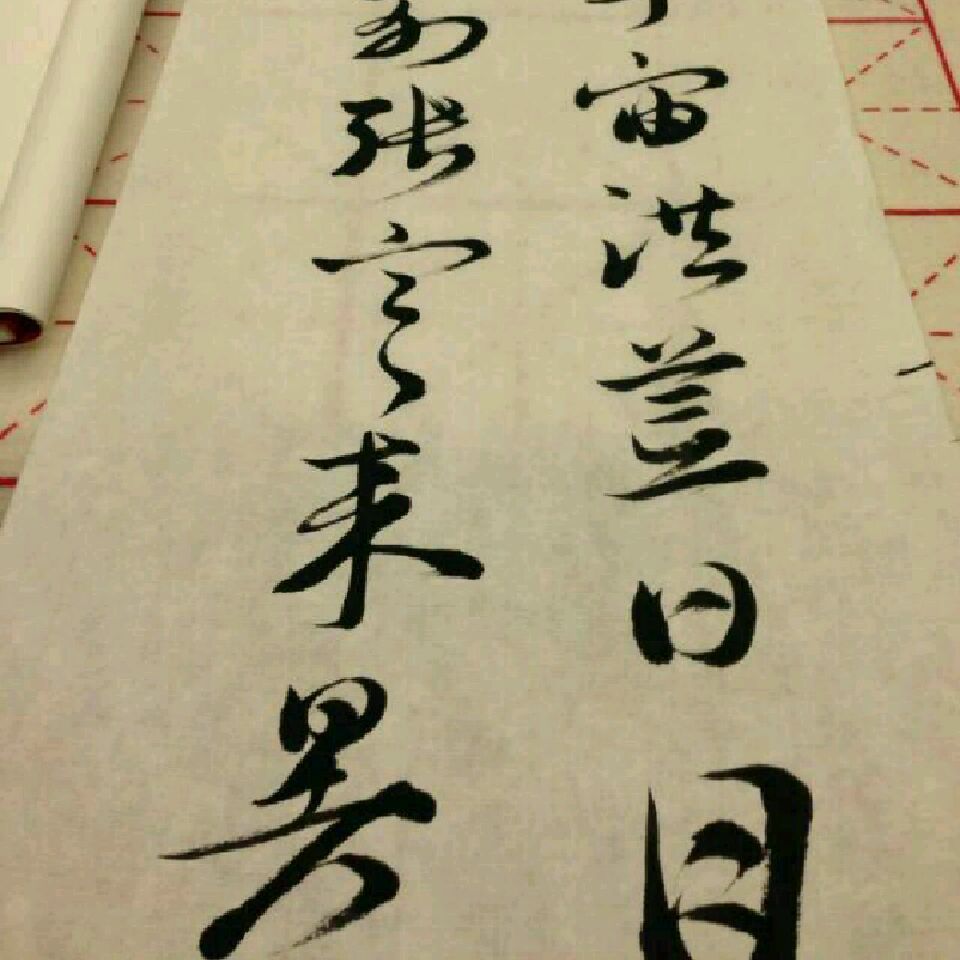 宙洪荒日月
列張寒来暑